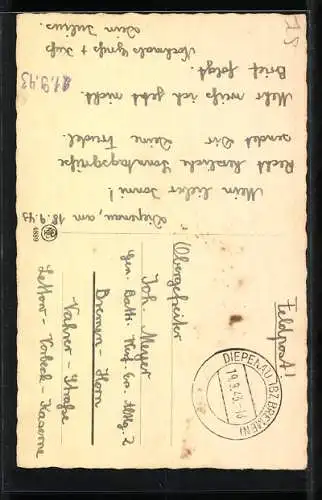 Diepenau, am 18.9.43
Mein lieber Jonni!
Recht herzliche Sonntagsgrüße
sendet Dir Deine Trudel.
Mehr weiß ich jetzt nicht.
Brief folgt.
Nochmals Gruß + Kuß
Dein Julius.
21.9.43
Feldpost!
DIEPENAU (BZ. BREMEN)
19.9.43-16
Obergefreiter
Joh. Meyer
Gen. Battr. Kps. Abtlg. 2
Bremen-Horn
Vahrer-Straße
Lettow-Vorbeck-Kaserne